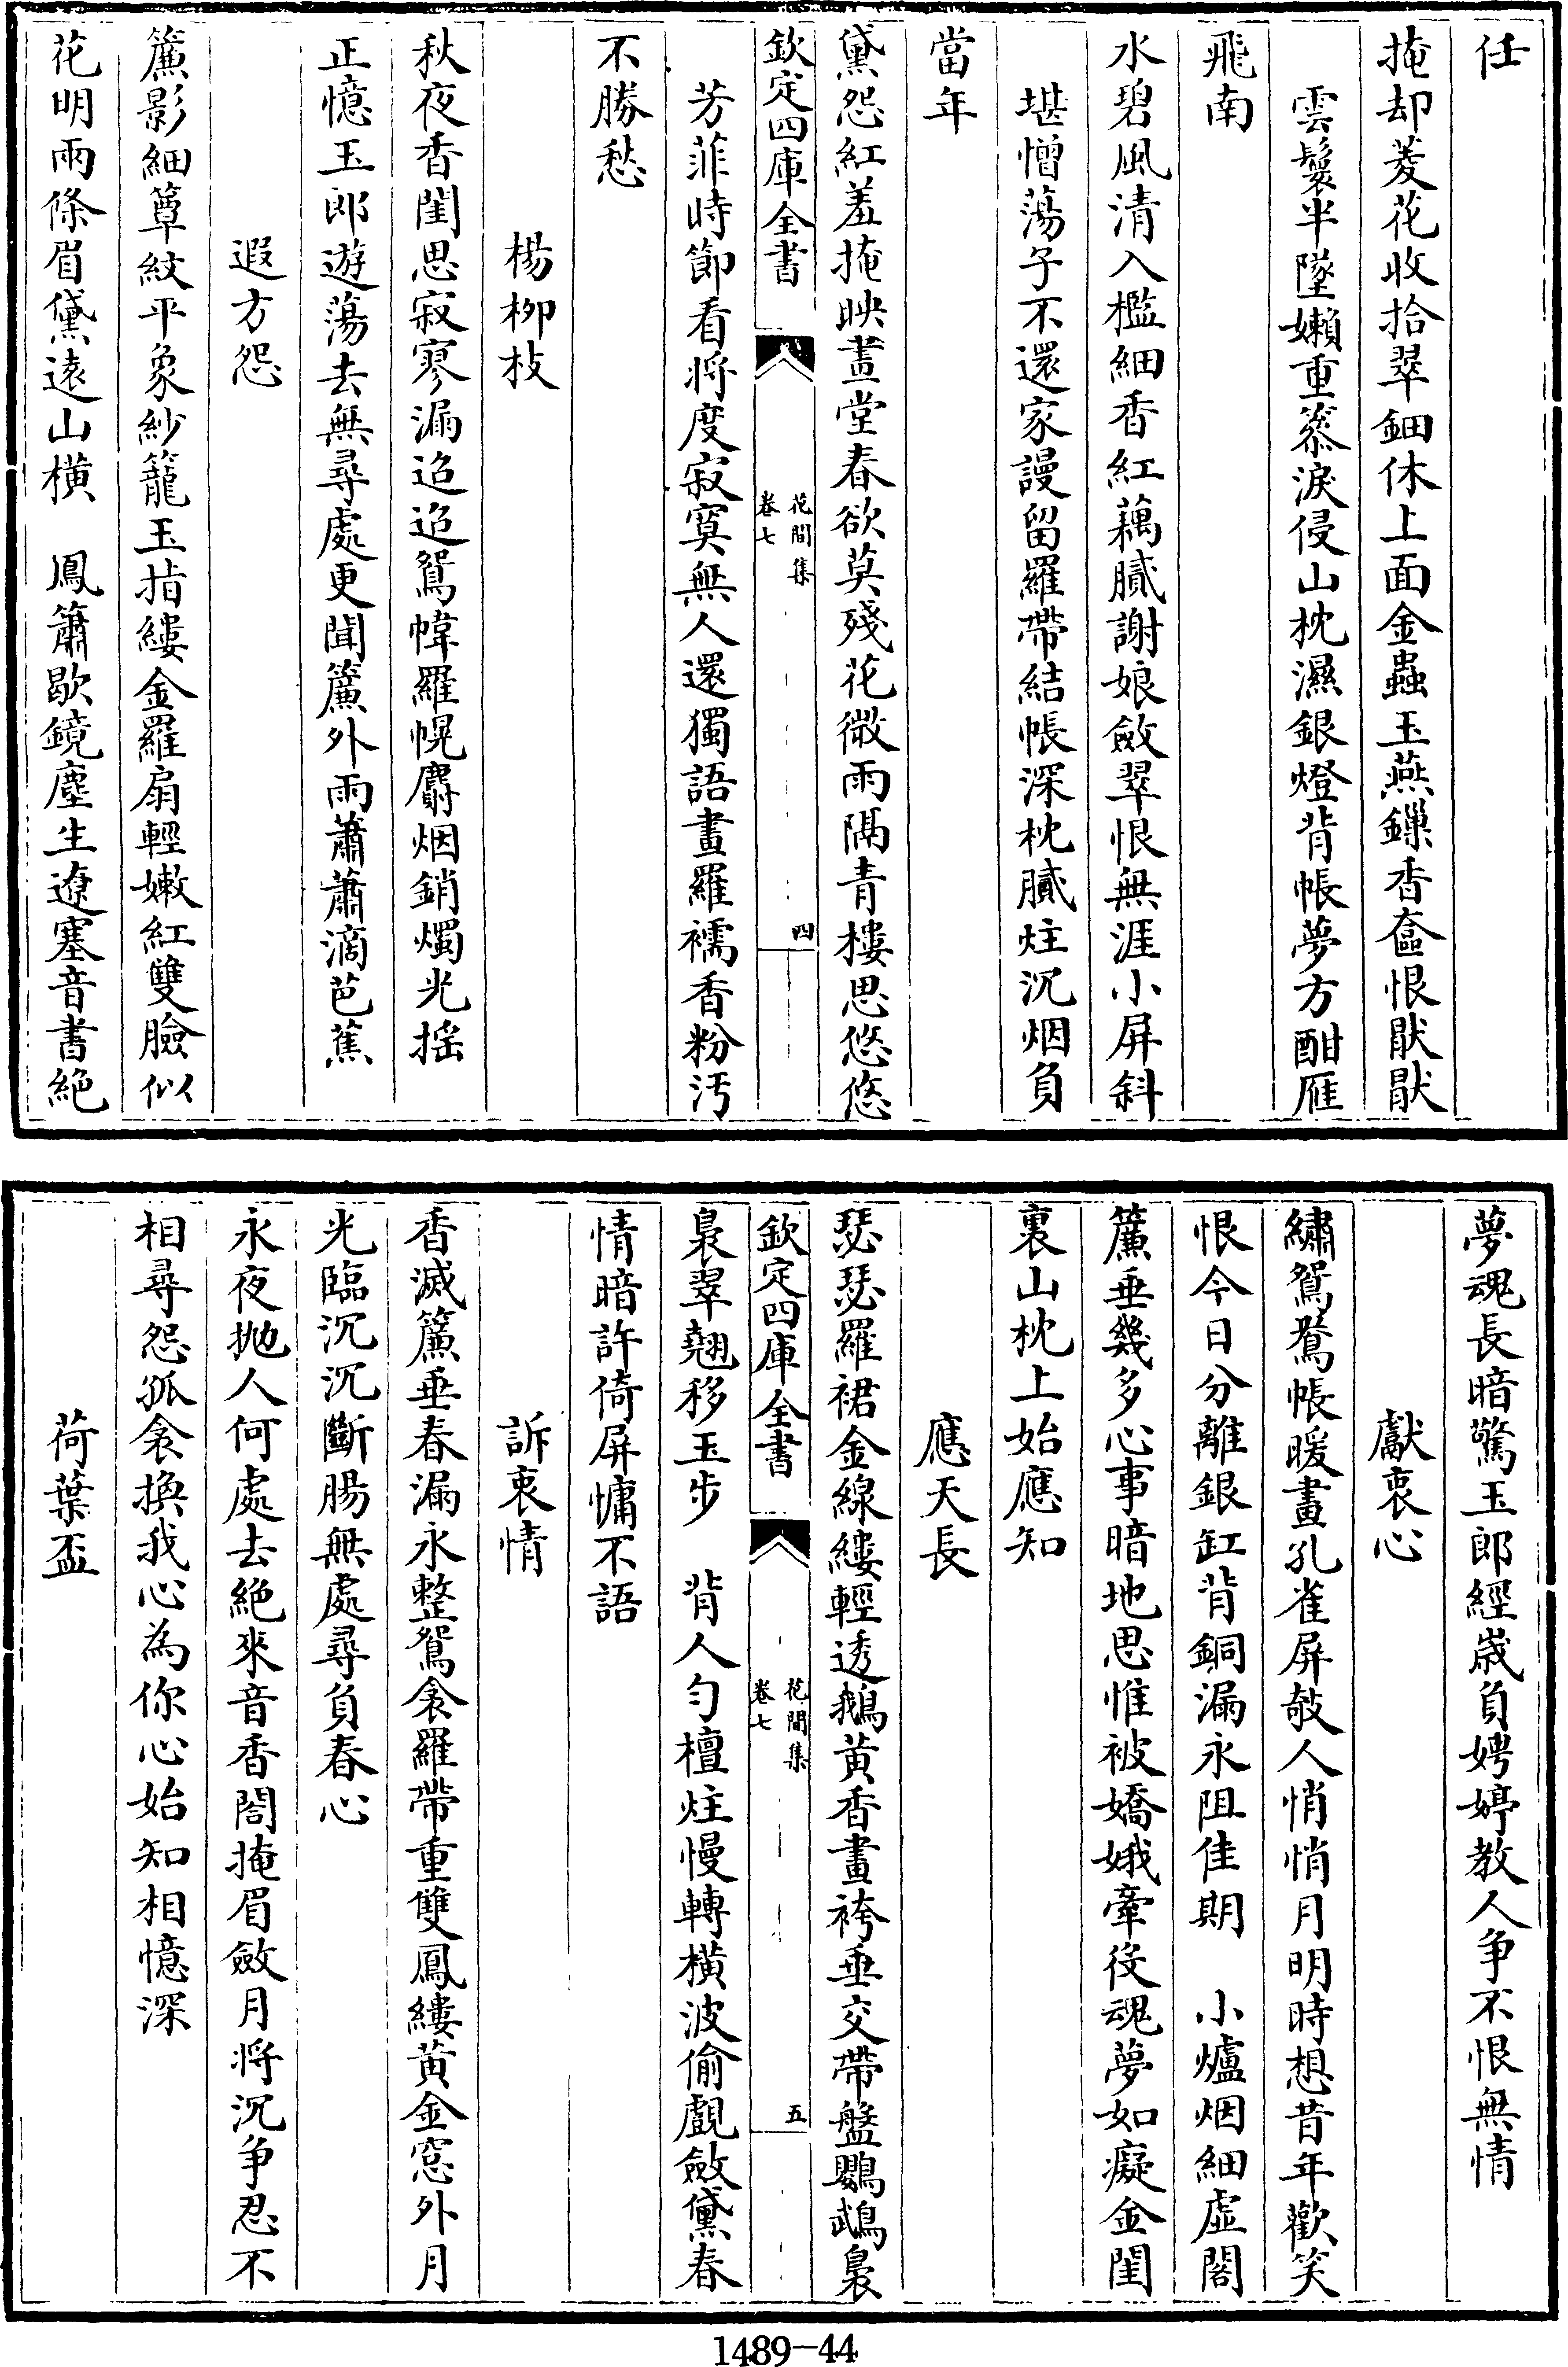 任
掩却菱花收拾翠鈿休上面金蟲玉燕鏁香奩恨猒猒
雲鬟半墜嬾重篸淚侵山枕濕銀燈背帳夢方酣雁
飛南
水碧風清入檻細香紅藕膩謝娘斂翠恨無涯小屏斜
堪憎蕩子不還家謾留羅帶結帳深枕膩炷沉烟負
當年
黛怨紅羞掩映畫堂春欲莫殘花微雨隔青樓思悠悠
欽定四庫全書
花間集
卷七
四
芳菲時節看將度寂寞無人還獨語畫羅襦香粉汚
不勝愁
楊柳枝
秋夜香閨思寂寥漏迢迢鴛幃羅幌麝烟銷燭光摇
正憶玉郎遊蕩去無尋處更聞簾外雨蕭蕭滴芭蕉
遐方怨
簾影細簟紋平象紗籠玉指縷金羅扇輕嫩紅雙臉似
花明兩條眉黛遠山橫　鳳簫歇鏡塵生遼塞音書絶
夢魂長暗驚玉郎經歲負娉婷教人争不恨無情
獻衷心
繡鴛鴦帳暖畫孔雀屏攲人悄悄月明時想昔年歡笑
恨今日分離銀缸背銅漏永阻佳期　小爐烟細虛閣
簾垂幾多心事暗地思惟被嬌娥牽役魂夢如癡金閨
裏山枕上始應知
應天長
瑟瑟羅裙金線縷輕透鵝黃香畫袴垂交帶盤鸚鵡裊
欽定四庫全書
花間集
卷七
五
裊翠翹移玉步　背人勻檀炷慢轉橫波偷覷斂黛春
情暗許倚屏慵不語
訴衷情
香滅簾垂春漏永整鴛衾羅帶重雙鳳縷黃金窓外月
光臨沉沉斷腸無處尋負春心
永夜抛人何處去絶來音香閤掩眉斂月將沉争忍不
相尋怨孤衾換我心為你心始知相憶深
荷葉盃
1489-44